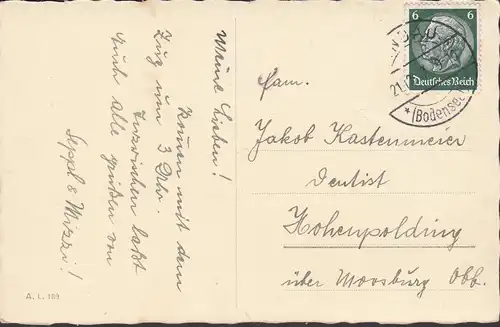 Meine Lieben!
Kommen mit dem
Zug um 3 Uhr.
Inzwischen laßt
Euch alle grüßen von
Seppl & Mizzi!
A. L. 109
6 6
Deutsches Reich
LINDAU
21.
(Bodensee)
Fam.
Jakob Kastenmeier
Dentist
Hohenpolding
über Moosburg Obb.